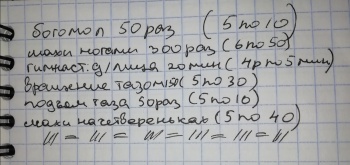 богомол 50 раз (5 по 10)
махи ногами 300 раз (6 по 50)
гимнаст. д/лица 20 мин (4 р по 5 мин)
вращение тазом 150 (5 по 30)
подъем таза 50 раз (5 по 10)
махи на четвереньках (5 по 40)